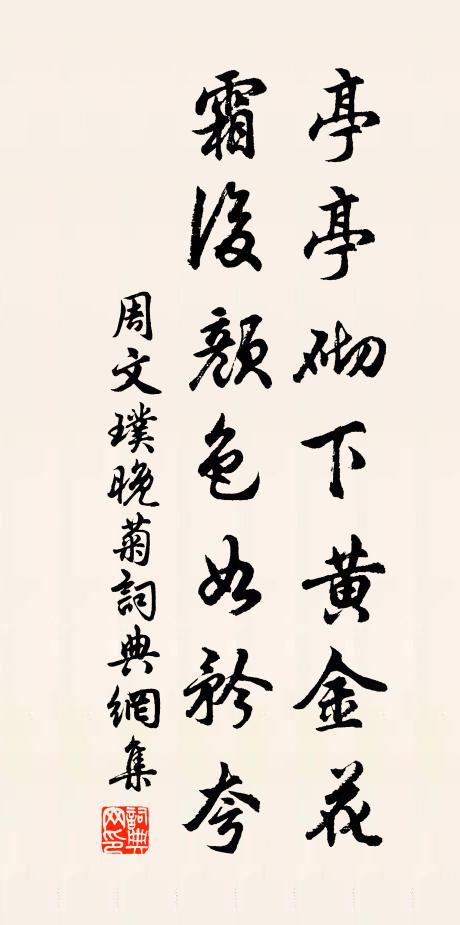 亭亭砌下黄金花
霜後顏色如矜夸
周文璞晚菊詞典網集
詞典網印